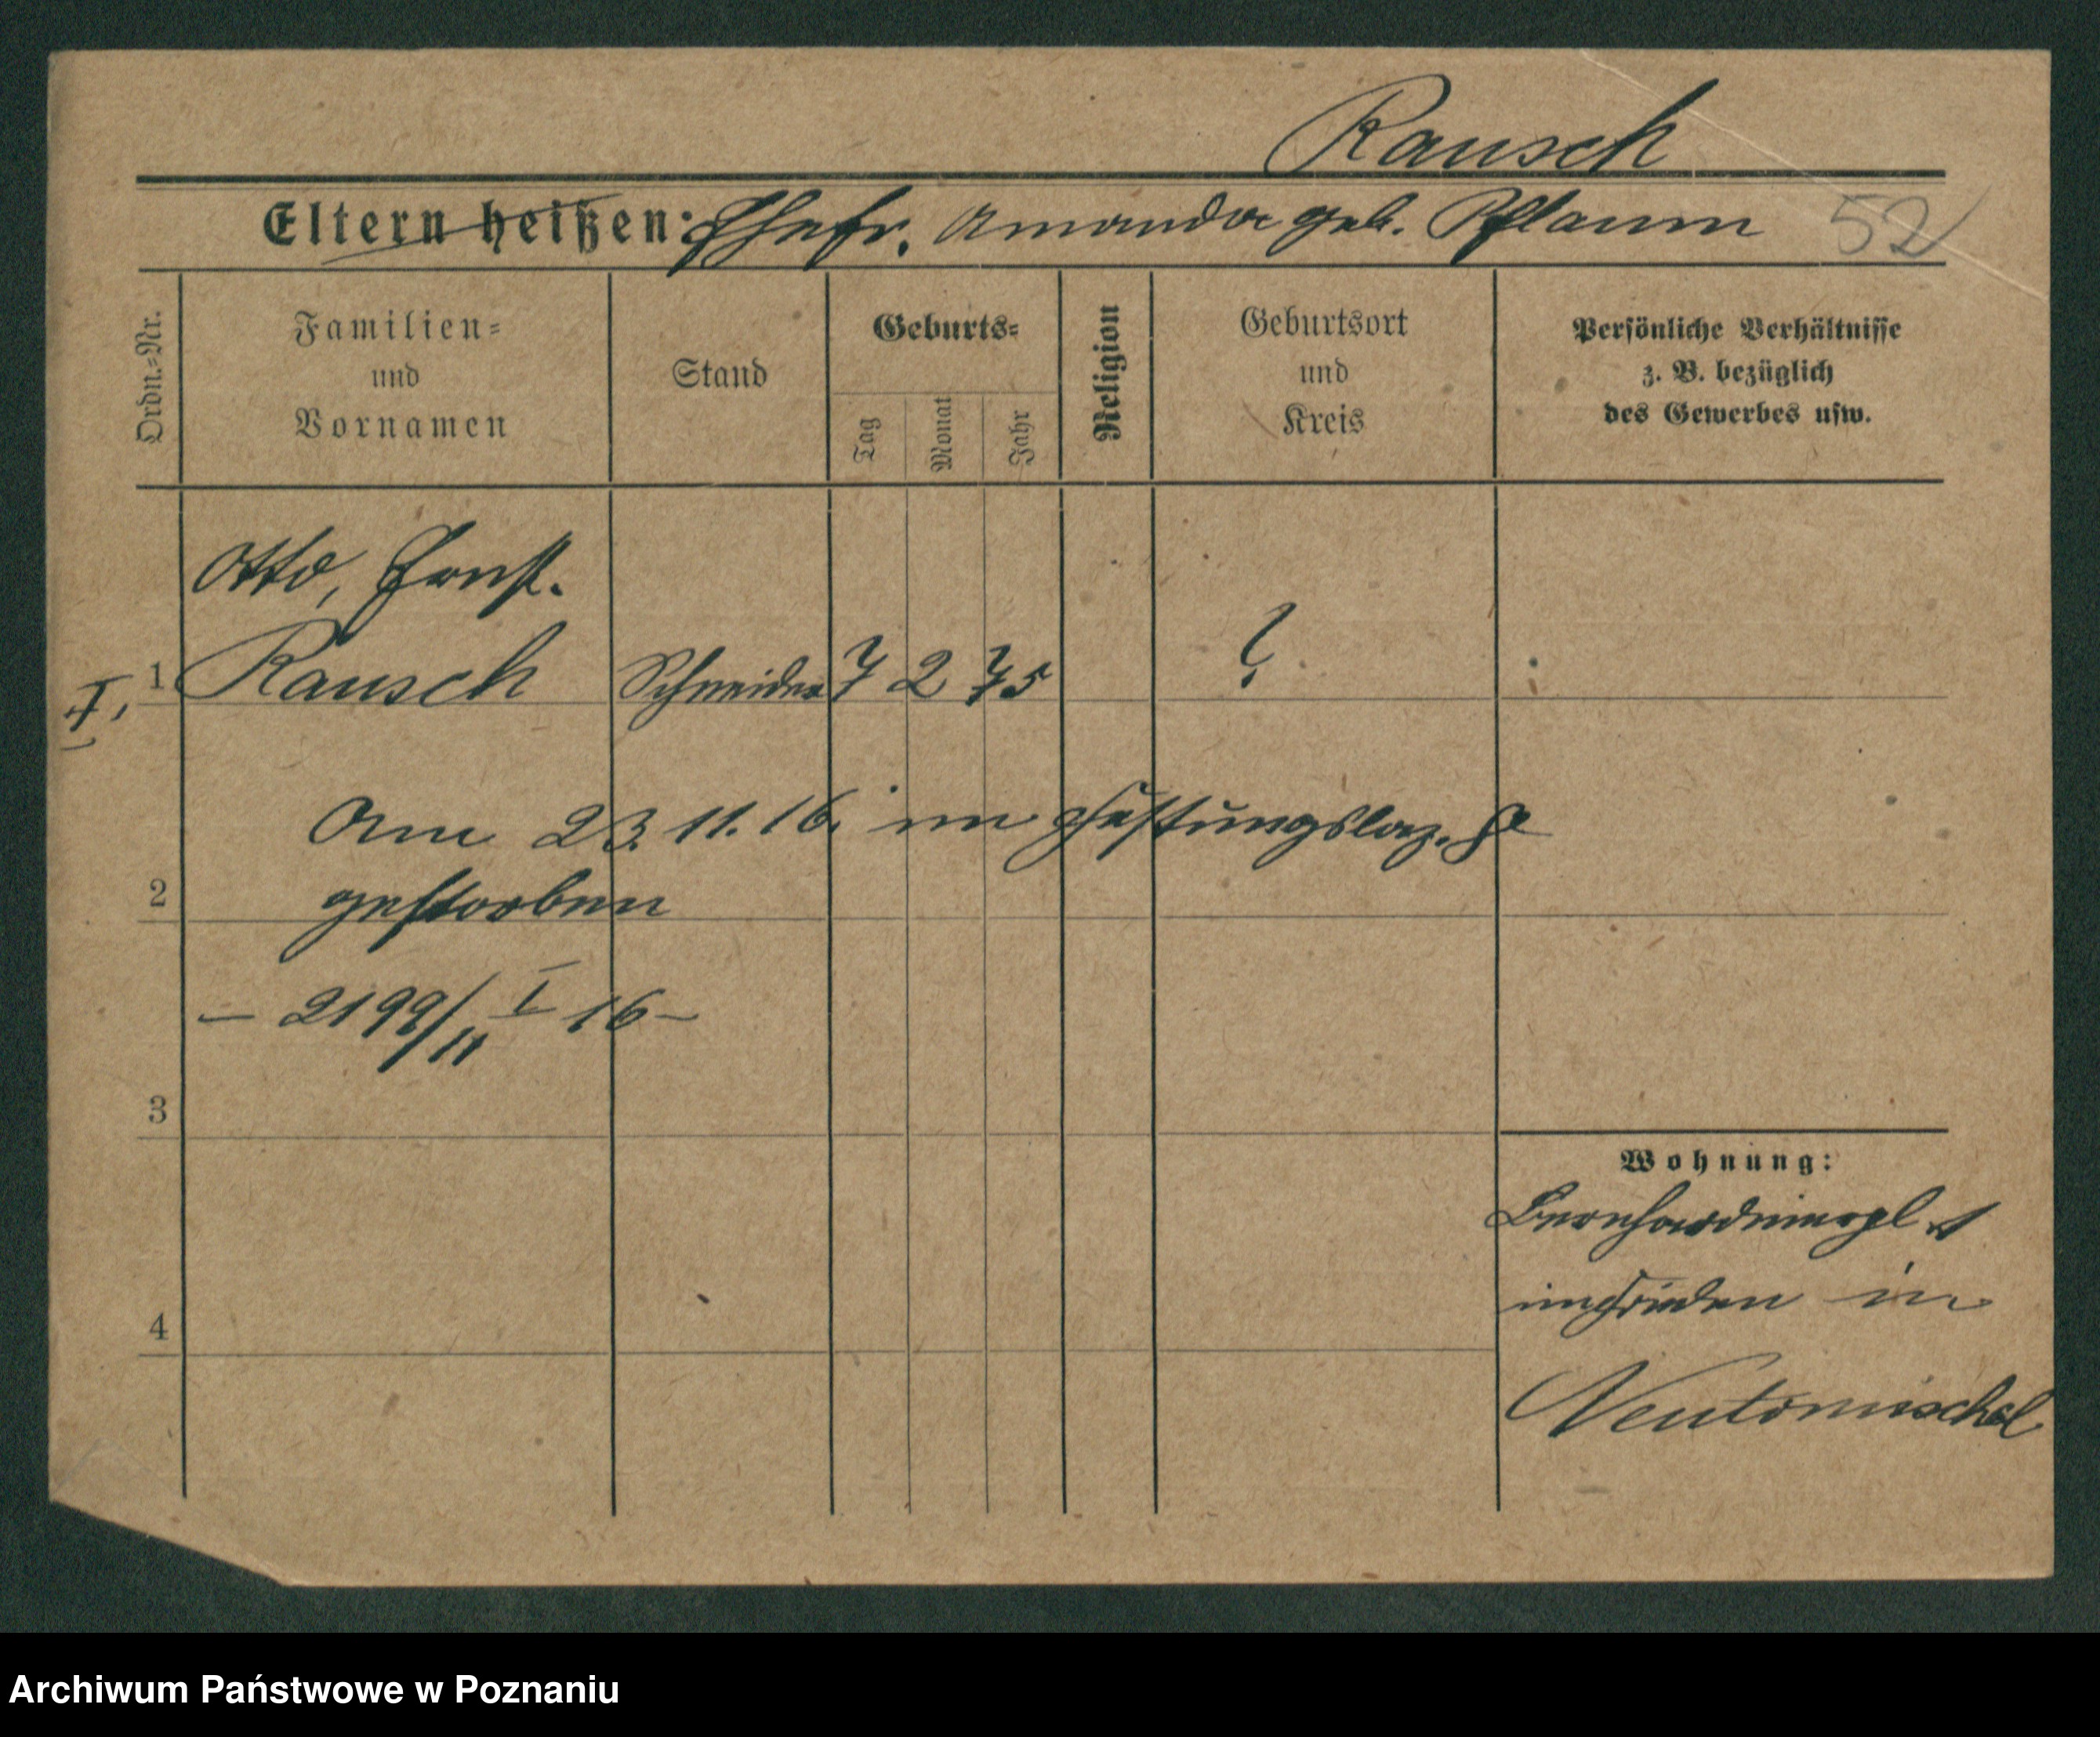 Rausch
Eltern heißen: Ehefr. Amanda geb. Pflaum 52
Ordn.-Nr.
Familien- und Vornamen
Stand
Geburts-
Tag
Monat
Jahr
Religion
Geburtsort und Kreis
Persönliche Verhältnisse
z. B. bezüglich
des Gewerbes usw.
Otto, Ernst.
I, 1 Rausch Schneider 7 2 75 ?
Am 23. 11. 16. im Festungslaz.
2 gestorben
– 2199/11 I 16 –
3
Wohnung:
Bernhardinerpl. 1
im Frieden in
4
Neutomischel
Archiwum Państwowe w Poznaniu